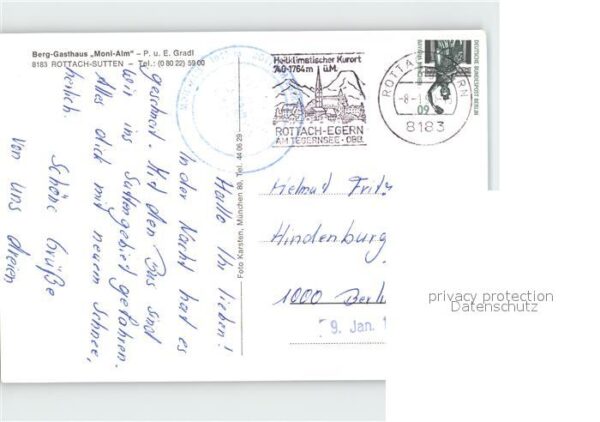 Berg-Gasthaus „Moni-Alm" - P. u. E. Gradl
8183 ROTTACH-SUTTEN - Tel.: (0 80 22) 59 00
Hallo Ihr Lieben!
In der Nacht hat es
geschneit. Mit dem Bus sind
wir ins Suttengebiet gefahren.
Alles dick mit neuem Schnee,
herrlich.
Schöne Grüße
von uns dreien
Foto Karsten, München 80, Tel. 44 06 29
Heilklimatischer Kurort
740-1764 m ü.M.
ROTTACH-EGERN
AM TEGERNSEE · OBB.
ROTTACH-EGERN
8183
DEUTSCHE BUNDESPOST BERLIN
60
Helmut Fritz
Hindenburg
1000 Berl
9. Jan. 1
privacy protection
Datenschutz